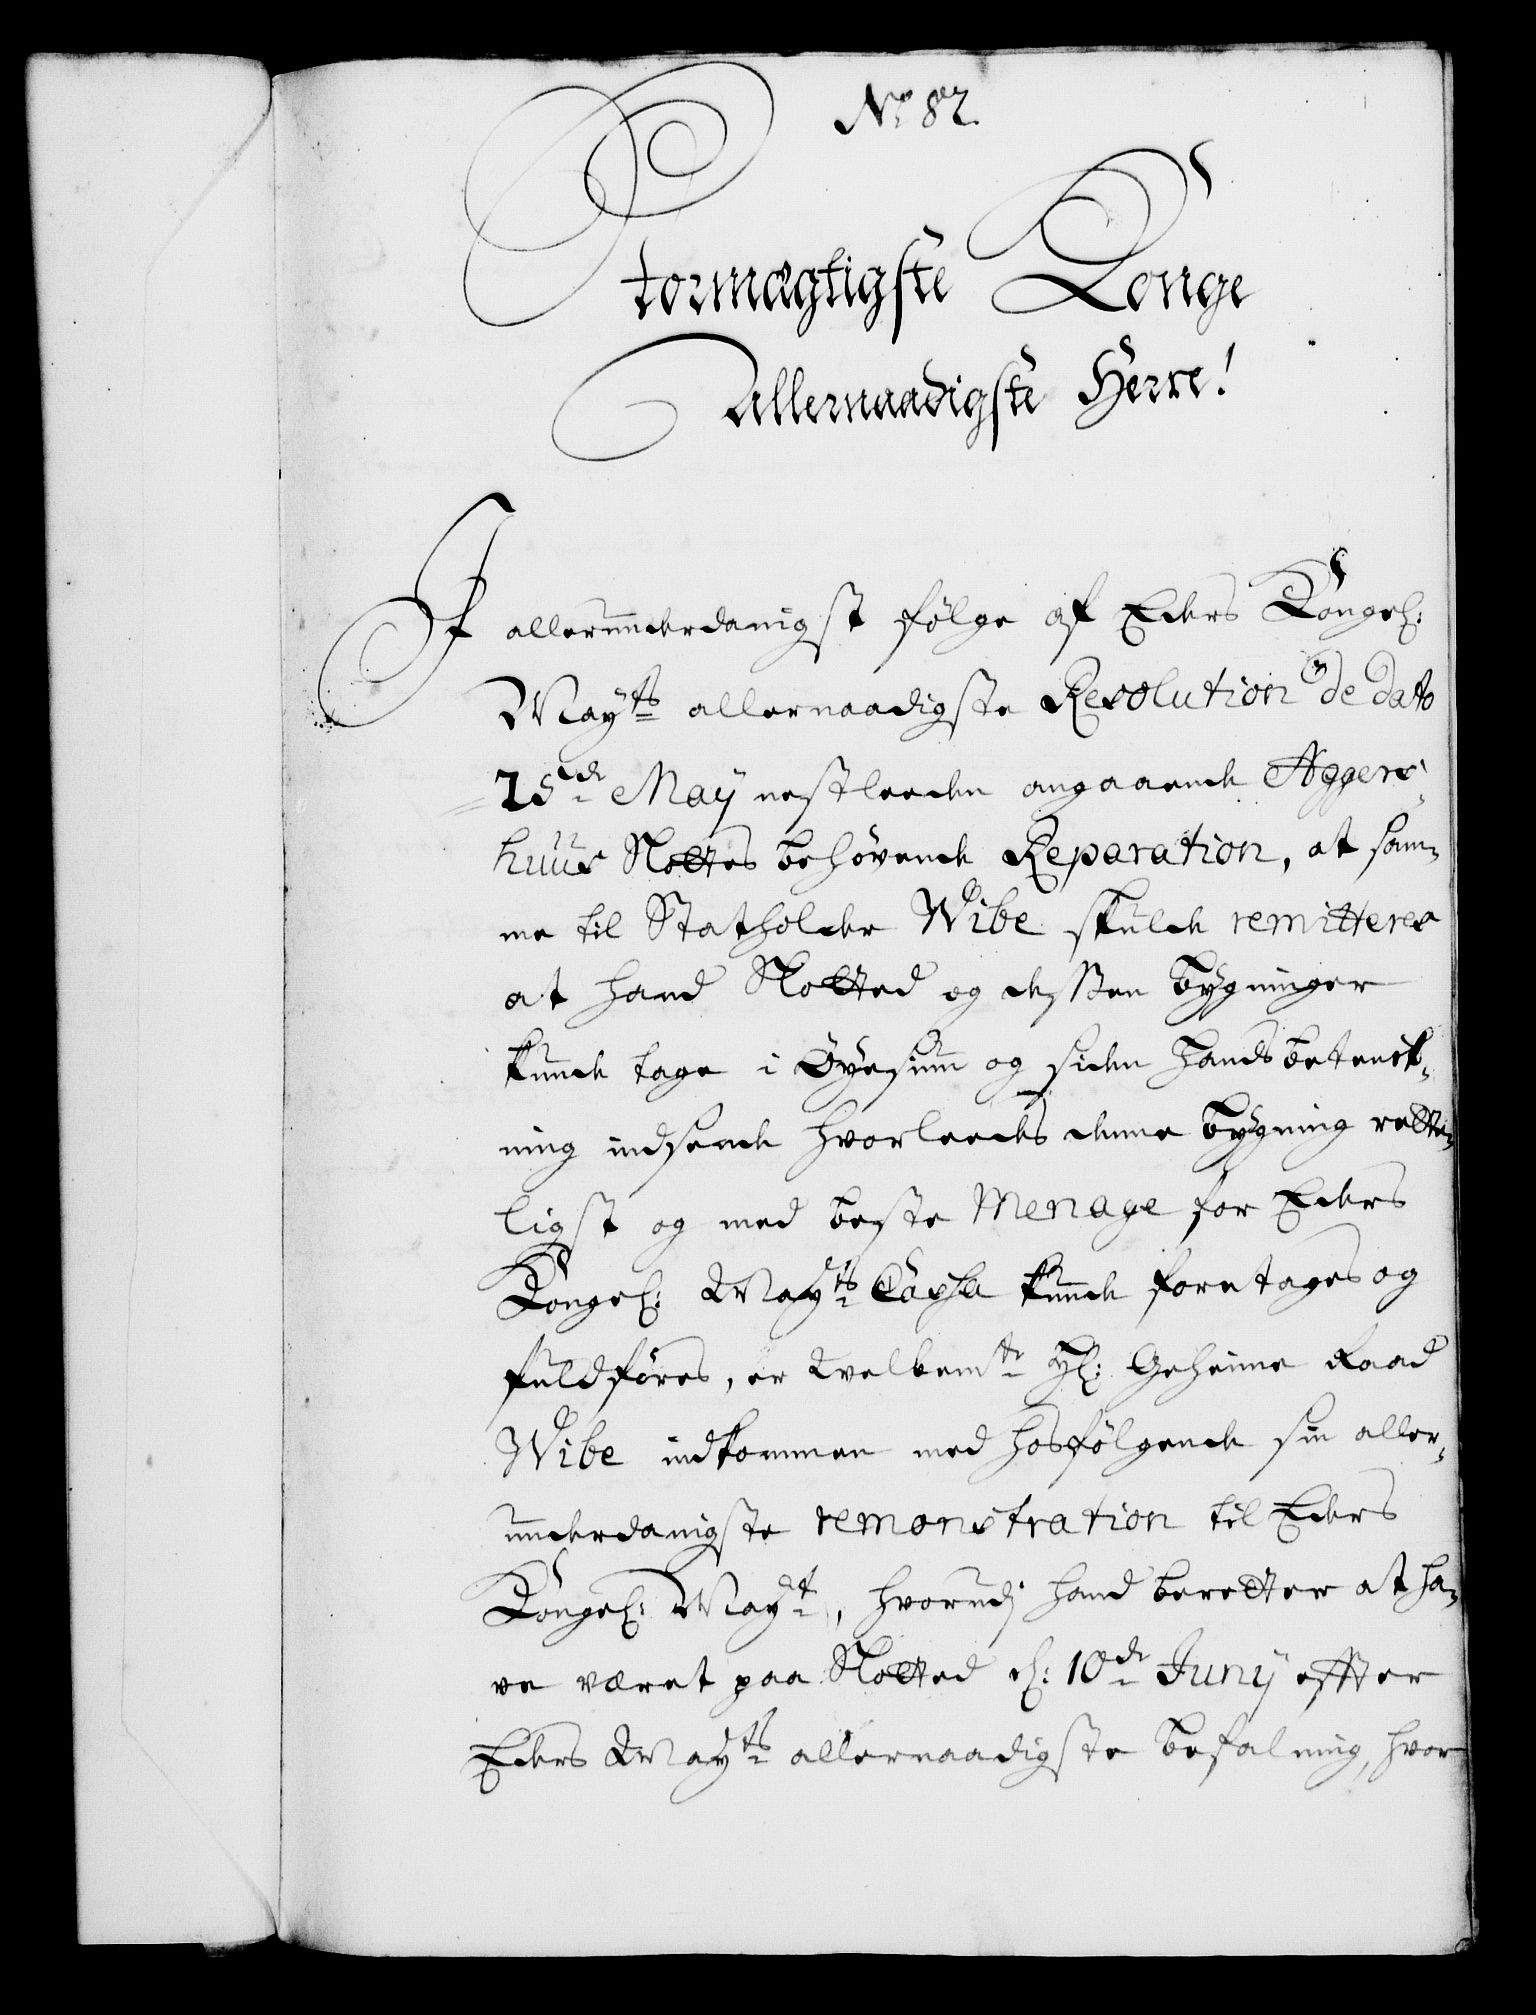 No 82.
Stormægtigste Konge
Allernaadigste Herre!
I allerunderdanigst følge af Eders Kongel:
Mayts allernaadigste Resolution de dato
25de Maÿ nestleeden angaaende Aggers-
huus Slottes behøvende Reparation, at sam-
me til Statholder Wibe skulde remitteres
at hand Slotted og dessen bygninger
kunde tage i Øyesiun og siden hands betenk-
ning indsende hvorleedes denne bygning rette-
ligst og med beste Menage for Eders
Kongel: Mayts Cassa kunde foretages og
fuldføres, er Welbemte Hl: Geheime Raad
Wibe indkommen med hosfølgende sin aller-
underdanigste remonstration til Eders
Kongel: Mayt, hvorudj hand beretter at ha-
ve været paa Slotted d: 10de Junÿ effter
Eders Mayts allernaadigste befalning, hvor